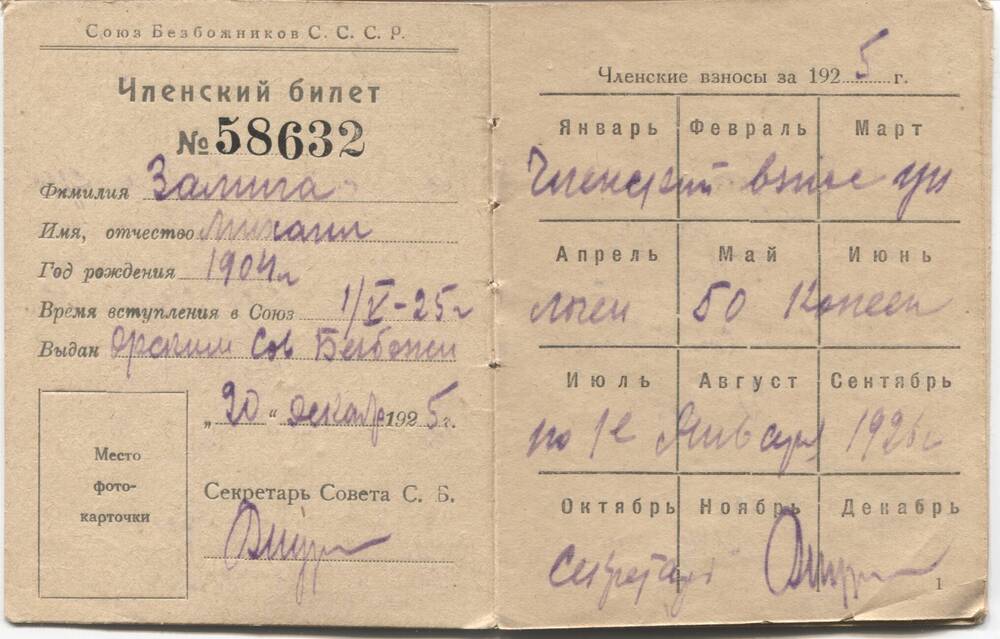 Союз Безбожников С. С. С. Р.
Членский билет
№ 58632
Фамилия Замига
Имя, отчество Михаил
Год рождения 1904 г
Время вступления в Союз 1/V-25 г
Выдан Орским Сов Безбожн
„20“ декабр 1925 г.
Место
фото-
карточки
Секретарь Совета С. Б.
Членские взносы за 1925 г.
Январь Февраль Март
Членский взнос уп
Апрель Май Июнь
лочен 50 копеек
Июль Август Сентябрь
по 1е Января 1926 г
Октябрь Ноябрь Декабрь
Секретарь
1